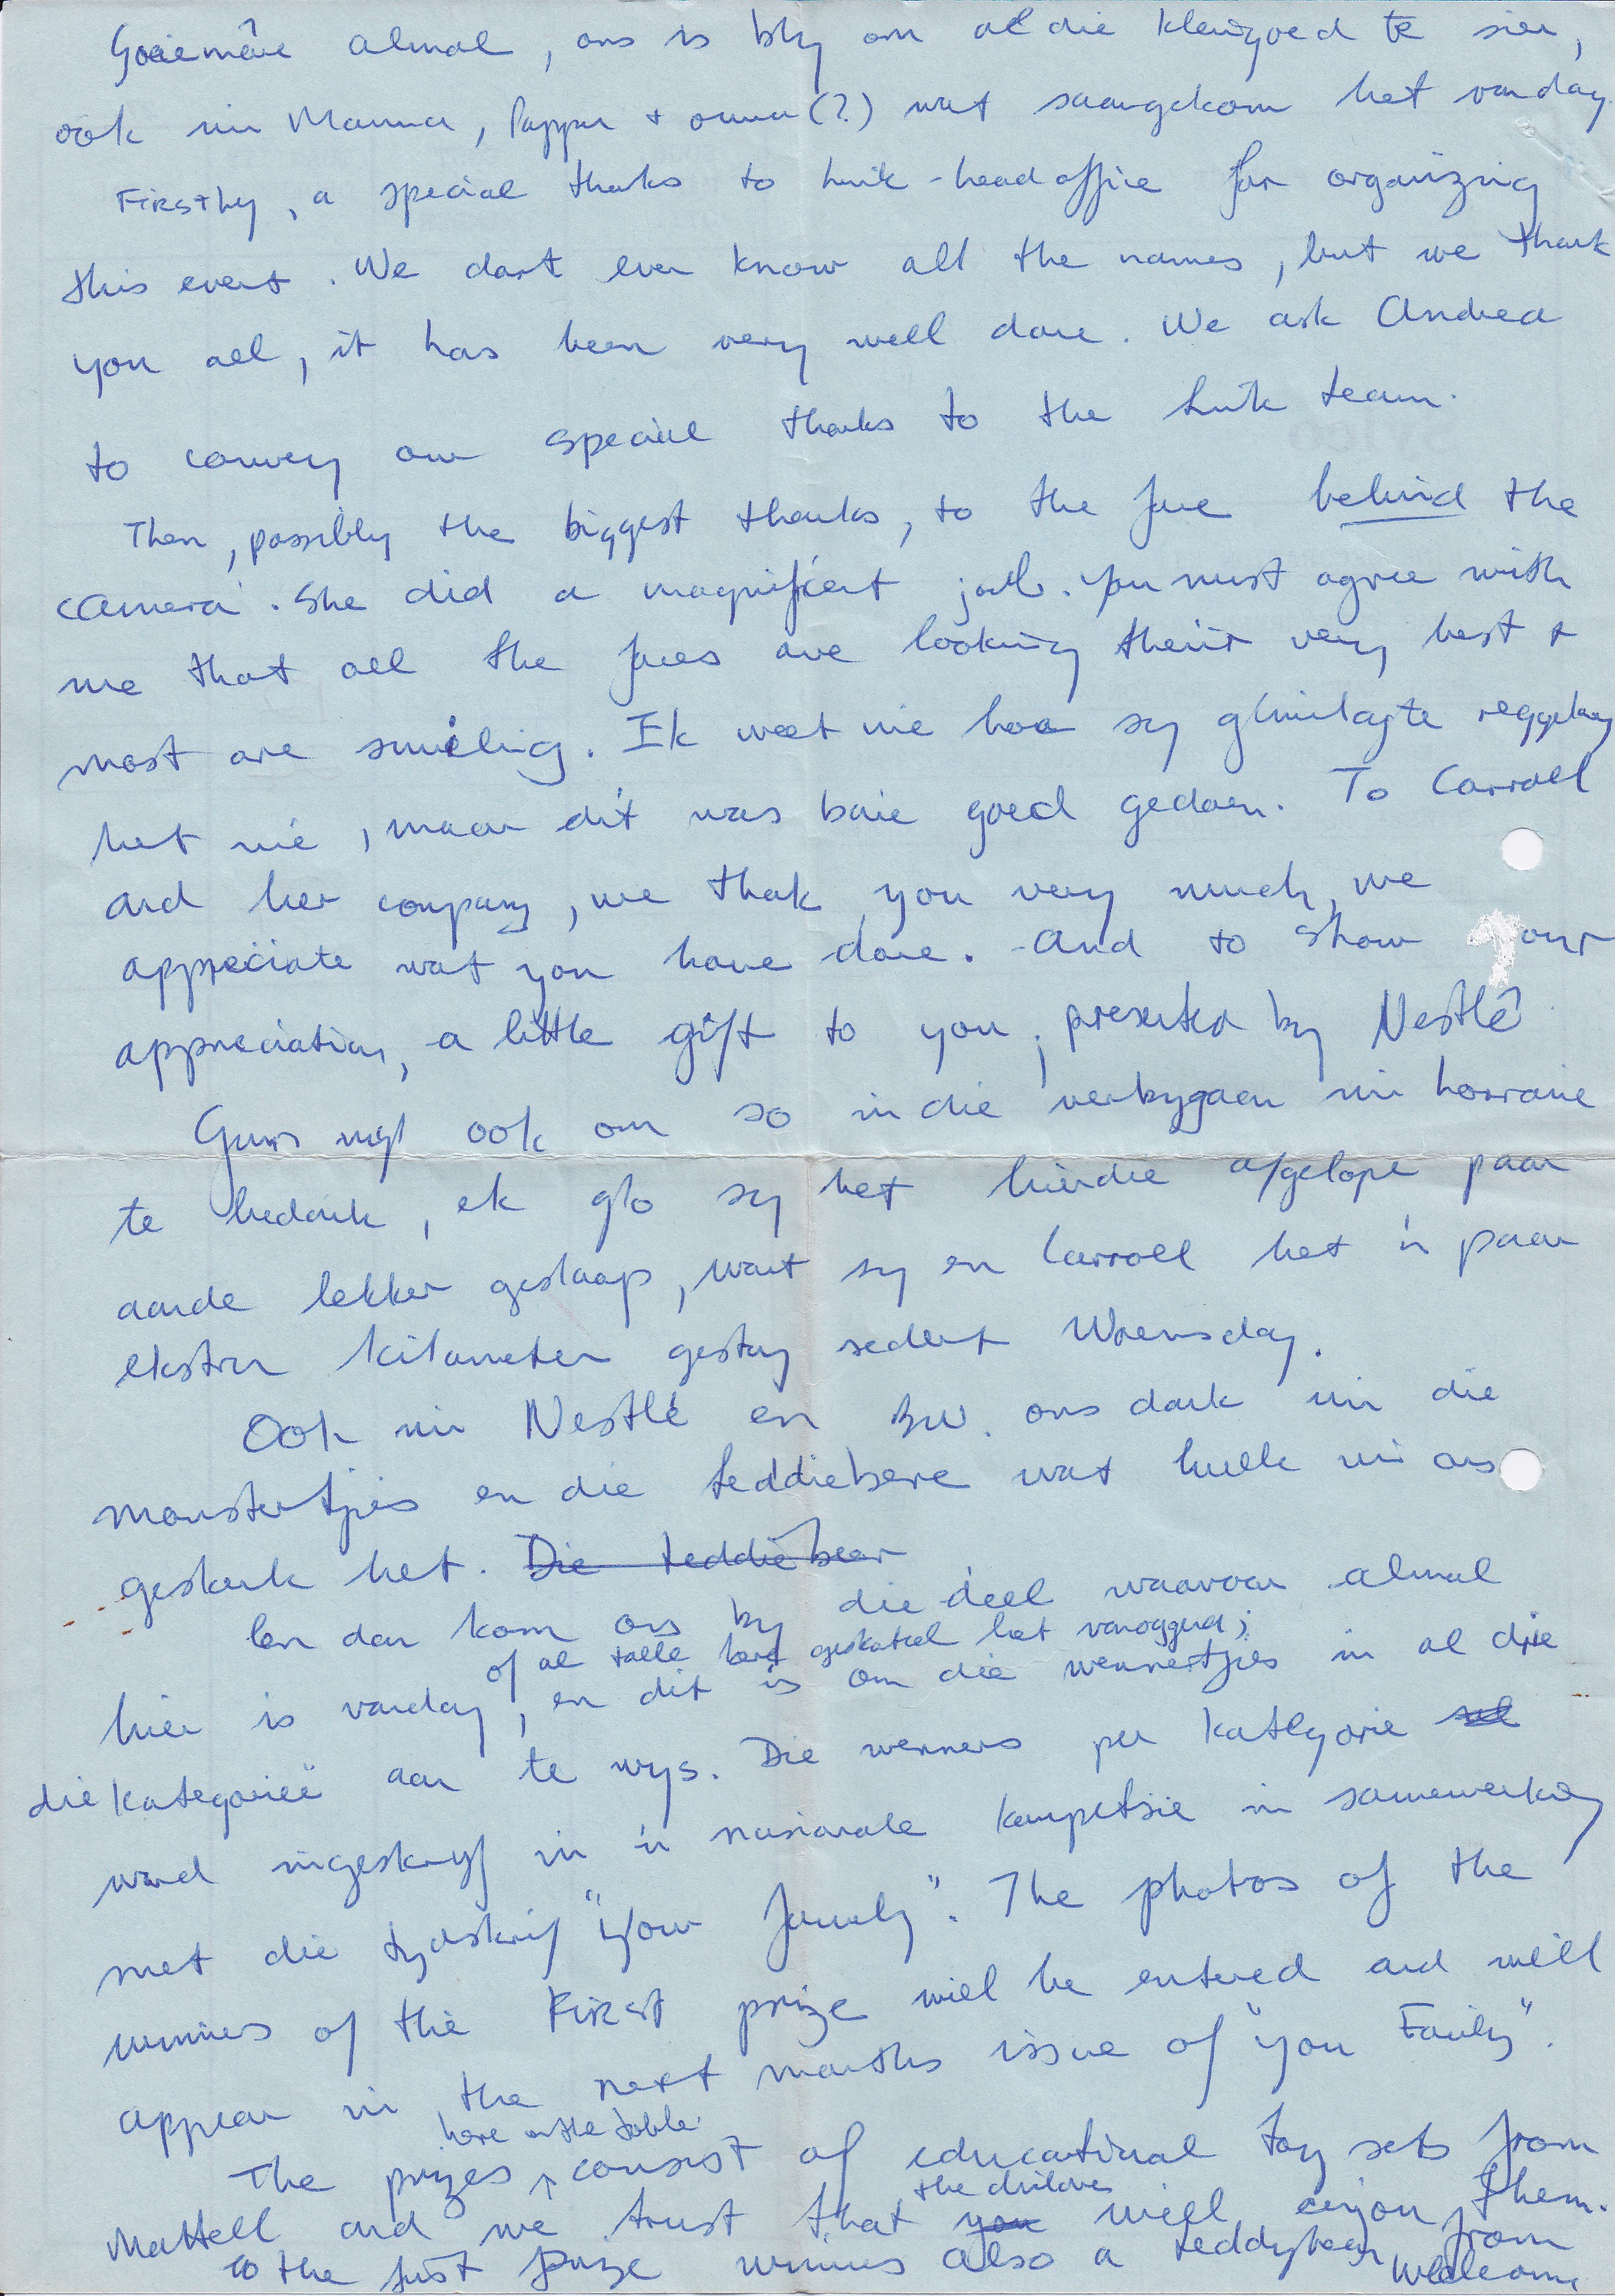 Goeiemôre almal, ons is bly om al die kleingoed te sien,
ook vir Mamma, Pappa + ouma(?) wat saamgekom het vandag.
Firstly, a special thanks to Link-head office for organizing
this event. We dont even know all the names, but we thank
you all, it has been very well done. We ask Andrea
to convey our special thanks to the Link team.
Then, possibly the biggest thanks, to the face behind the
camera. She did a magnificent job. You must agree with
me that all the faces are looking their very best +
most are smiling. Ek weet nie hoe sy glimlagte reggekry
het nie, maar dit was baie goed gedoen. To Carroll
and her company, we thank you very much, we
appreciate wat you have done. And to show our
appreciation, a little gift to you, presented by Nestlé
ook om so in die verbygaan vir Lorraine
te bedank, ek glo sy het hierdie afgelope paar
aande lekker geslaap, want sy en Carroll het 'n paar
ekstra kilometer gestap sedert Woensdag.
Ook vir Nestlé en ons dank vir die
monstertjies en die teddiebere wat hulle vir ons
geskenk het. Die teddiebeer
En dan kom ons by die deel waarvoor almal
of al talle gekattel het vanoggend;
hier is vandag, en dit is om die wennertjies in al drie
die kategorieë aan te wys. Die wenners per kategorie sal
word ingeskryf in 'n nasionale kompetisie in samewerking
met die tydskrif "Your Family". The photos of the
winners of the First prize will be entered and will
appear in the next months issue of "you Family".
here on the table
The prizes consist of educational toy sets from
the children
Mattell and we trust that you will enjoy them.
to the first prize winners also a teddybear from